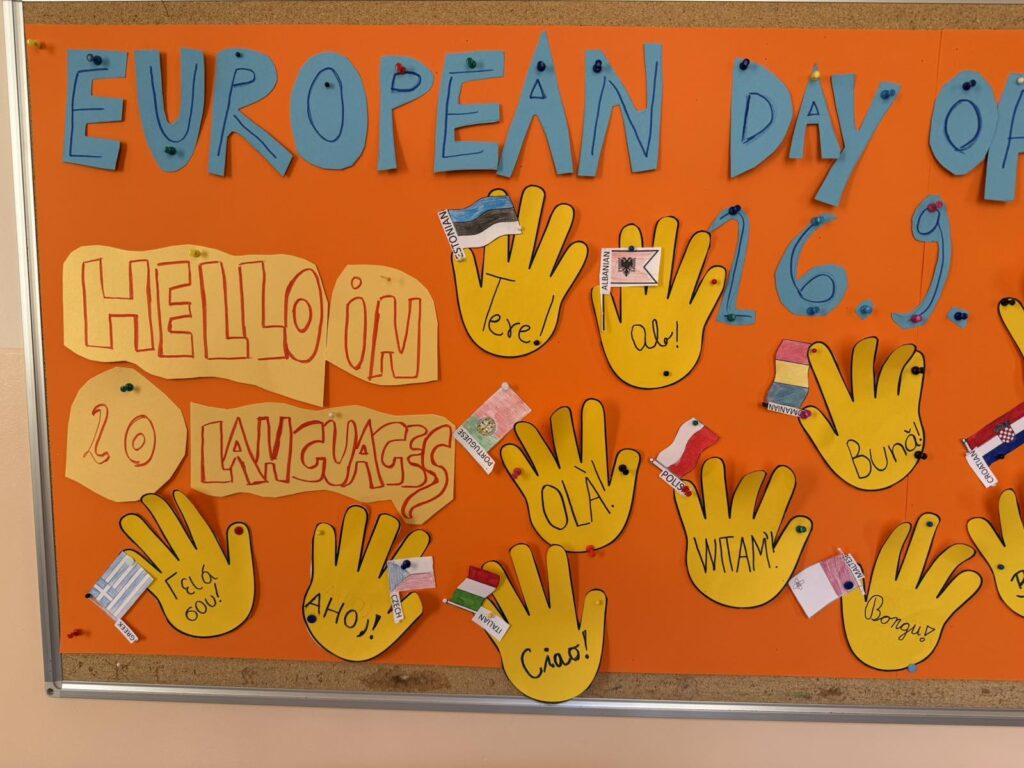 EUROPEAN DAY OF
26.9.
HELLO IN
20
LANGUAGES
ESTONIAN
Tere!
ALBANIAN
Alo!
ROMANIAN
Bună!
PORTUGUESE
OLÀ!
POLISH
WITAM!
CROATIAN
GREEK
Γειά
σου!
CZECH
AHOJ!
ITALIAN
Ciao!
Bongu!